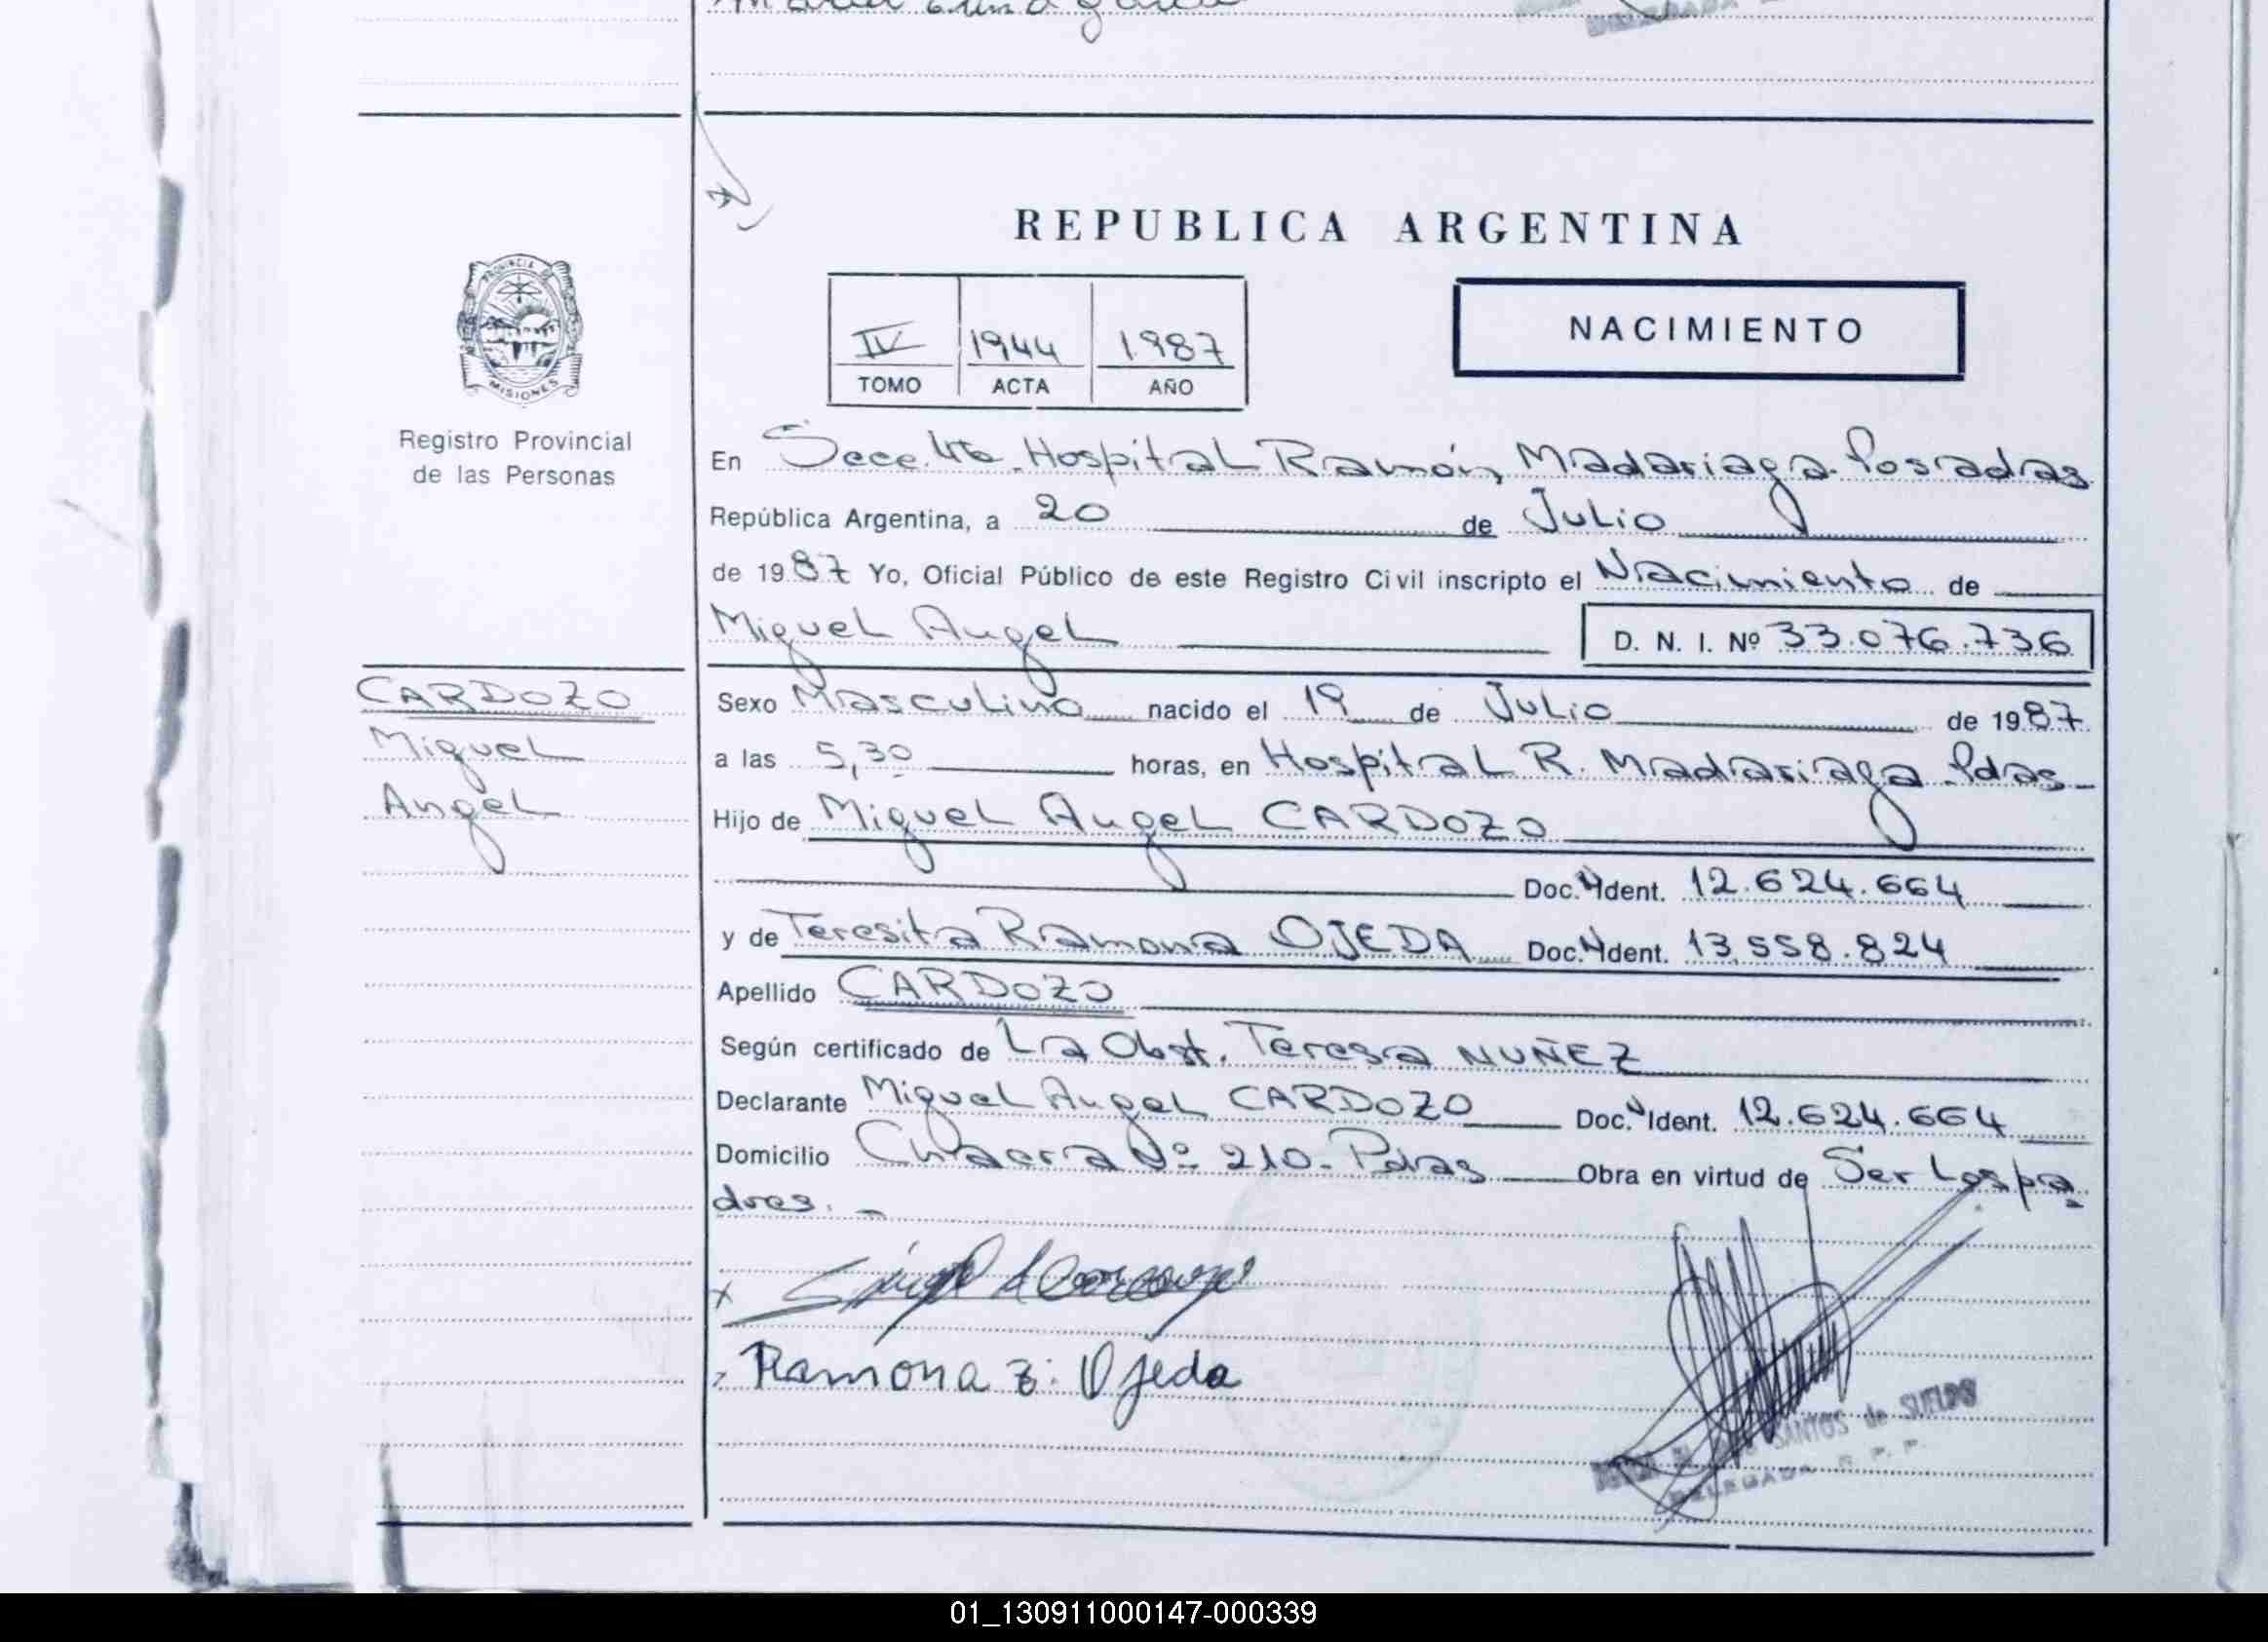 REPUBLICA ARGENTINA
PROVINCIA DE
MISIONES
Registro Provincial
de las Personas
NACIMIENTO
IV 1944 1987
TOMO ACTA AÑO
En Secc. 4ta. Hospital Ramón, Madariaga. Posadas
República Argentina, a 20 de Julio
de 1987 Yo, Oficial Público de este Registro Civil inscripto el Nacimiento de
Miguel Angel D. N. I. Nº 33.076.736
CARDOZO
Miguel
Angel
Sexo Masculino nacido el 19 de Julio de 1987.
a las 5,30 horas, en Hospital R. Madariaga Pdas-
Hijo de Miguel Angel CARDOZO
Doc. N Ident. 12.624.664
y de Teresita Ramona OJEDA Doc. N Ident. 13.558.824
Apellido CARDOZO
Según certificado de La Obst. Teresa NUÑEZ
Declarante Miguel Angel CARDOZO Doc. N Ident. 12.624.664
Domicilio Chacra Nº 210- Pdas Obra en virtud de Ser Los pa
dres. -
x
Ramona T. Ojeda
SANTOS de SUELDO
DELEGADA R. P. P.
01_130911000147-000339